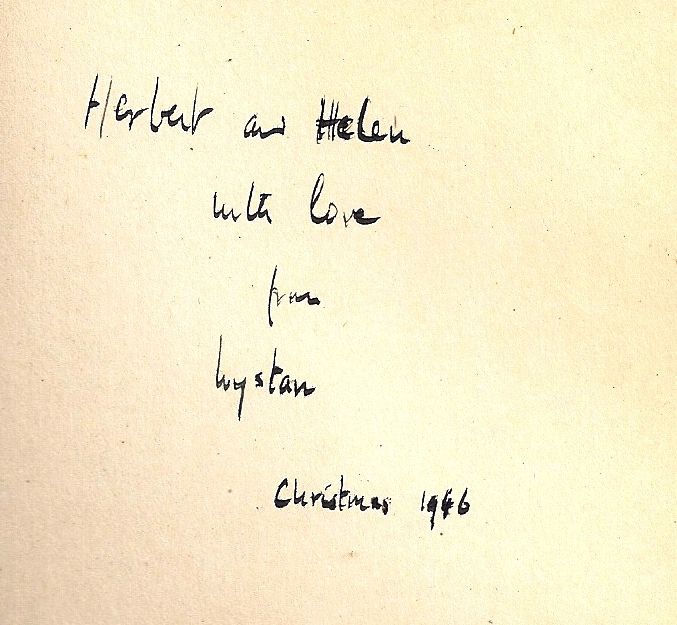 Herbert and Helen
with love
from
Wystan
Christmas 1946